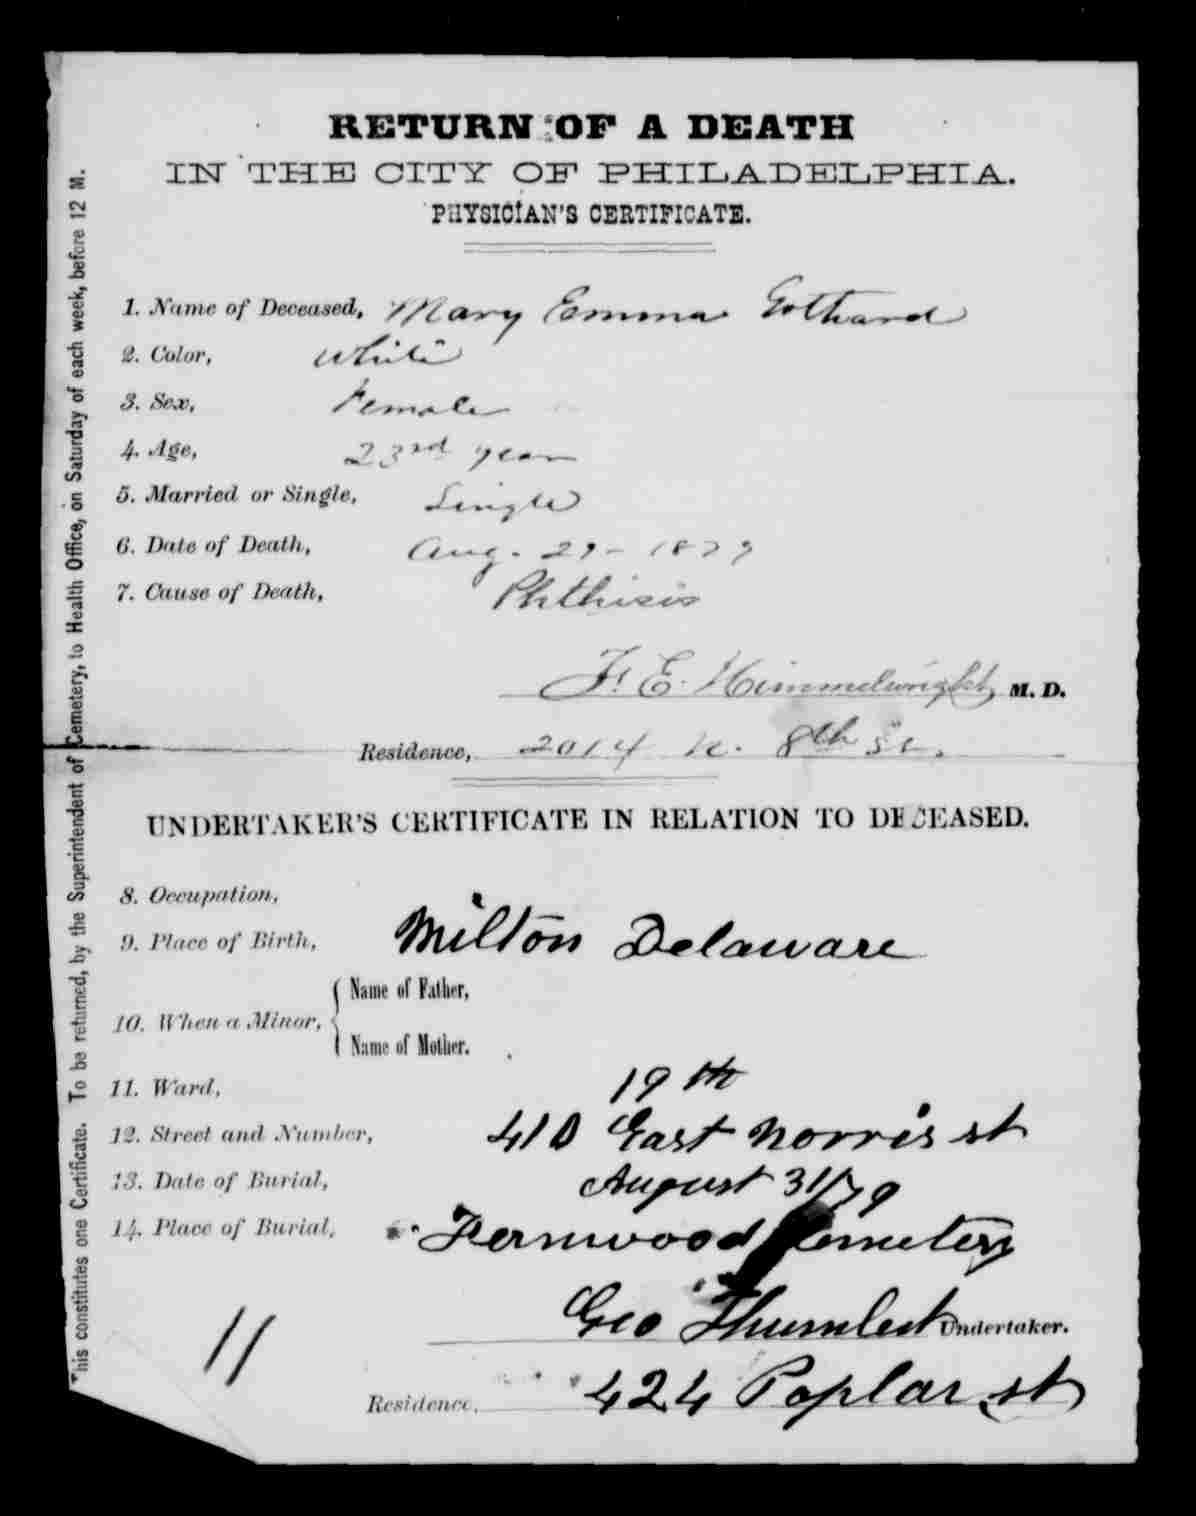 RETURN OF A DEATH
IN THE CITY OF PHILADELPHIA.
PHYSICIAN'S CERTIFICATE.
1. Name of Deceased, Mary Emma Gothard
2. Color, White
3. Sex, Female
4. Age, 23rd year
5. Married or Single, Single
6. Date of Death, Aug. 29 - 1879
7. Cause of Death, Phthisis
F. E. Himmelwright M. D.
Residence, 2014 N. 8th St.
UNDERTAKER'S CERTIFICATE IN RELATION TO DECEASED.
8. Occupation,
9. Place of Birth, Milton Delaware
10. When a Minor, { Name of Father,
Name of Mother.
11. Ward, 19th
12. Street and Number, 410 East Norris st
13. Date of Burial, August 31/79
14. Place of Burial, Fernwood Cemetery
Geo Undertaker.
11
Residence, 424 Poplar st
This constitutes one Certificate. To be returned, by the Superintendent of Cemetery, to Health Office, on Saturday of each week, before 12 M.